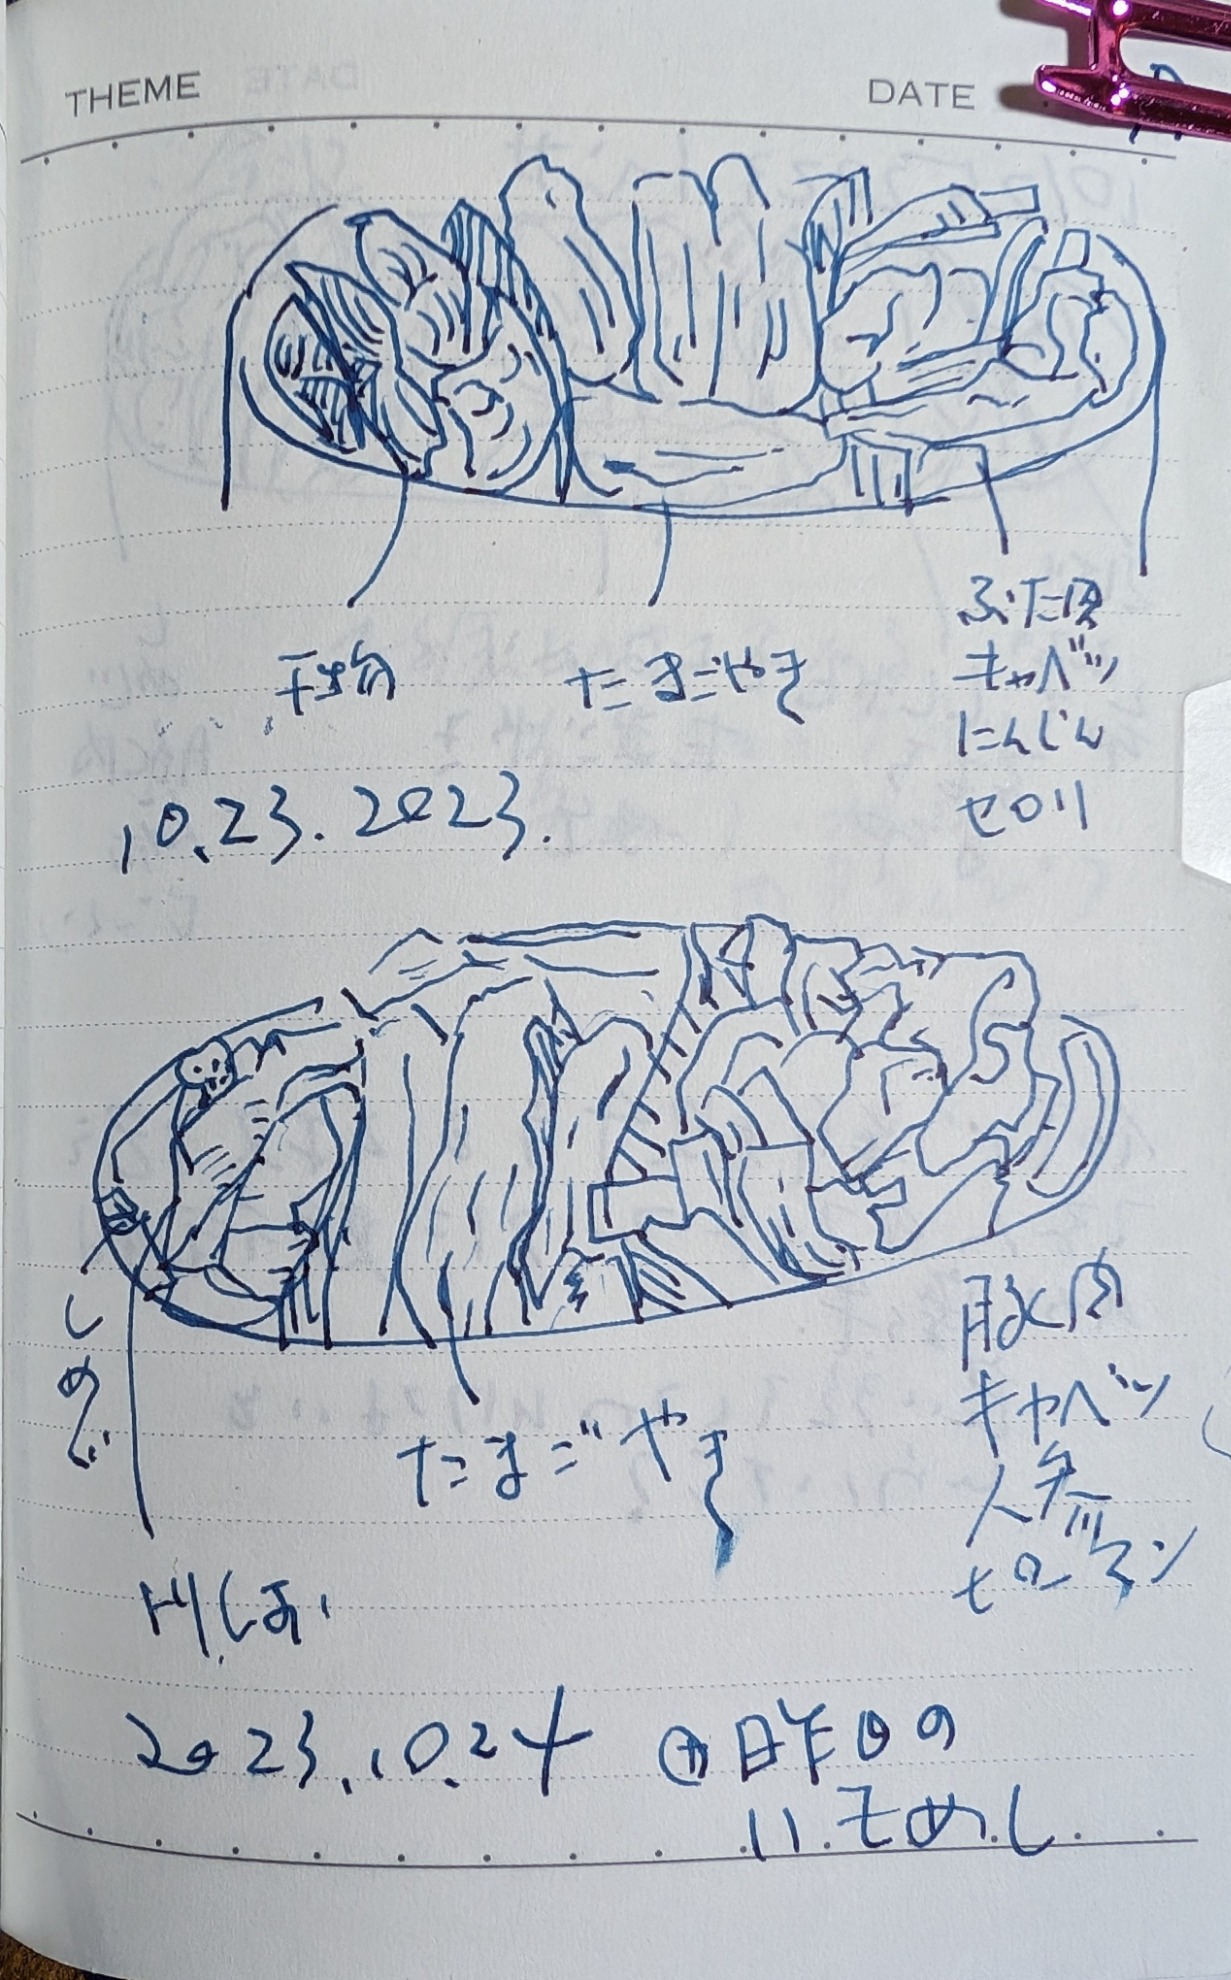 THEME
DATE
干物
たまごやき
ぶた肉
キャベツ
にんじん
セロリ
10.23.2023.
しめじ
たまごやき
豚肉
キャベツ
人参
トリしお
2023.10.24
昨日の